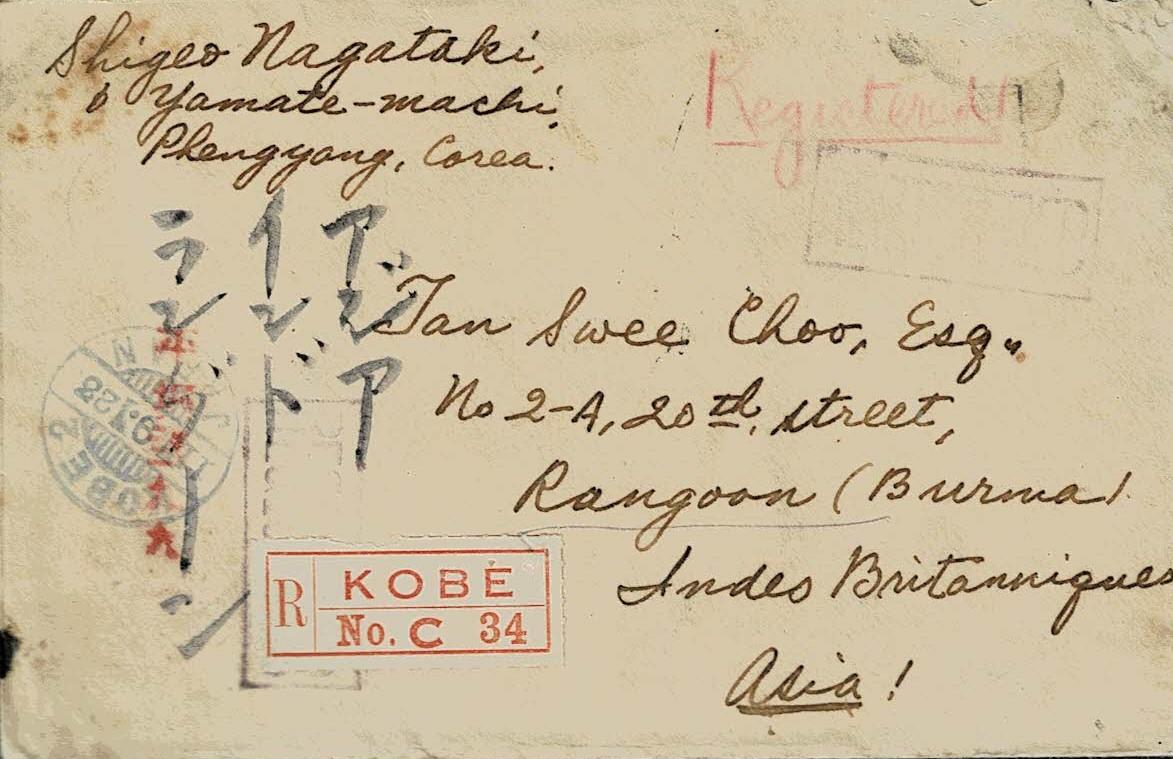 Shigeo Nagataki,
6 Yamate-machi,
Phengyang, Corea.
Registered!
アジア
インド
ラングーン
Tan Swee Choo, Esq.,
No 2-A, 20th street,
Rangoon (Burma)
Indes Britanniques
Asia!
KOBE
R KOBÉ
No. C 34